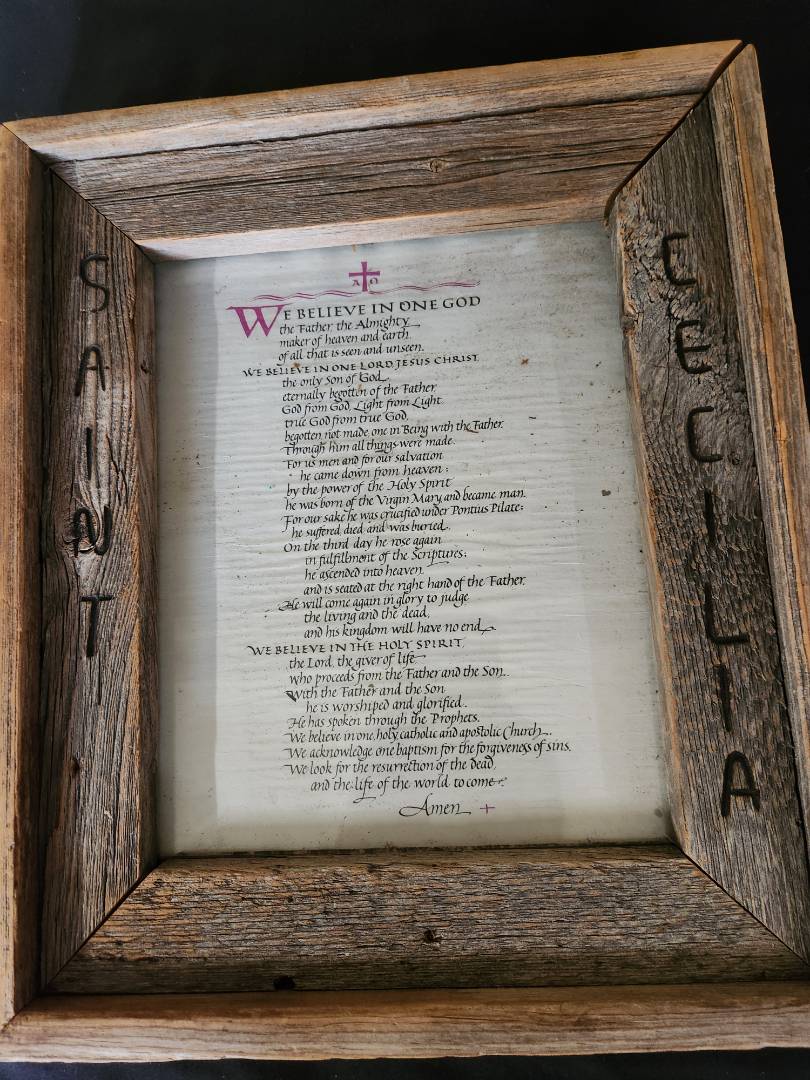 SAINT
CECILIA
Α Ω
WE BELIEVE IN ONE GOD
the Father, the Almighty
maker of heaven and earth,
of all that is seen and unseen.
WE BELIEVE IN ONE LORD, JESUS CHRIST,
the only Son of God,
eternally begotten of the Father,
God from God, Light from Light,
true God from true God,
begotten not made one in Being with the Father.
Through him all things were made.
For us men and for our salvation
he came down from heaven:
by the power of the Holy Spirit
he was born of the Virgin Mary, and became man.
For our sake he was crucified under Pontius Pilate;
he suffered, died, and was buried.
On the third day he rose again
in fulfillment of the Scriptures;
he ascended into heaven,
and is seated at the right hand of the Father.
He will come again in glory to judge
the living and the dead,
and his kingdom will have no end.
WE BELIEVE IN THE HOLY SPIRIT,
the Lord, the giver of life,
who proceeds from the Father and the Son.
With the Father and the Son
he is worshiped and glorified.
He has spoken through the Prophets.
We believe in one, holy, catholic and apostolic Church.
We acknowledge one baptism for the forgiveness of sins.
We look for the resurrection of the dead,
and the life of the world to come.
Amen